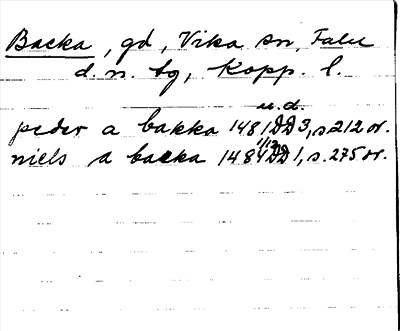 Backa, gd, Vika sn, Falu
d. n. tg, Kopp. l.
u. d.
peder a bakka 1481 DD 3, s. 212 or.
1/12
niels a backa 1484 DD 1, s. 275 or.